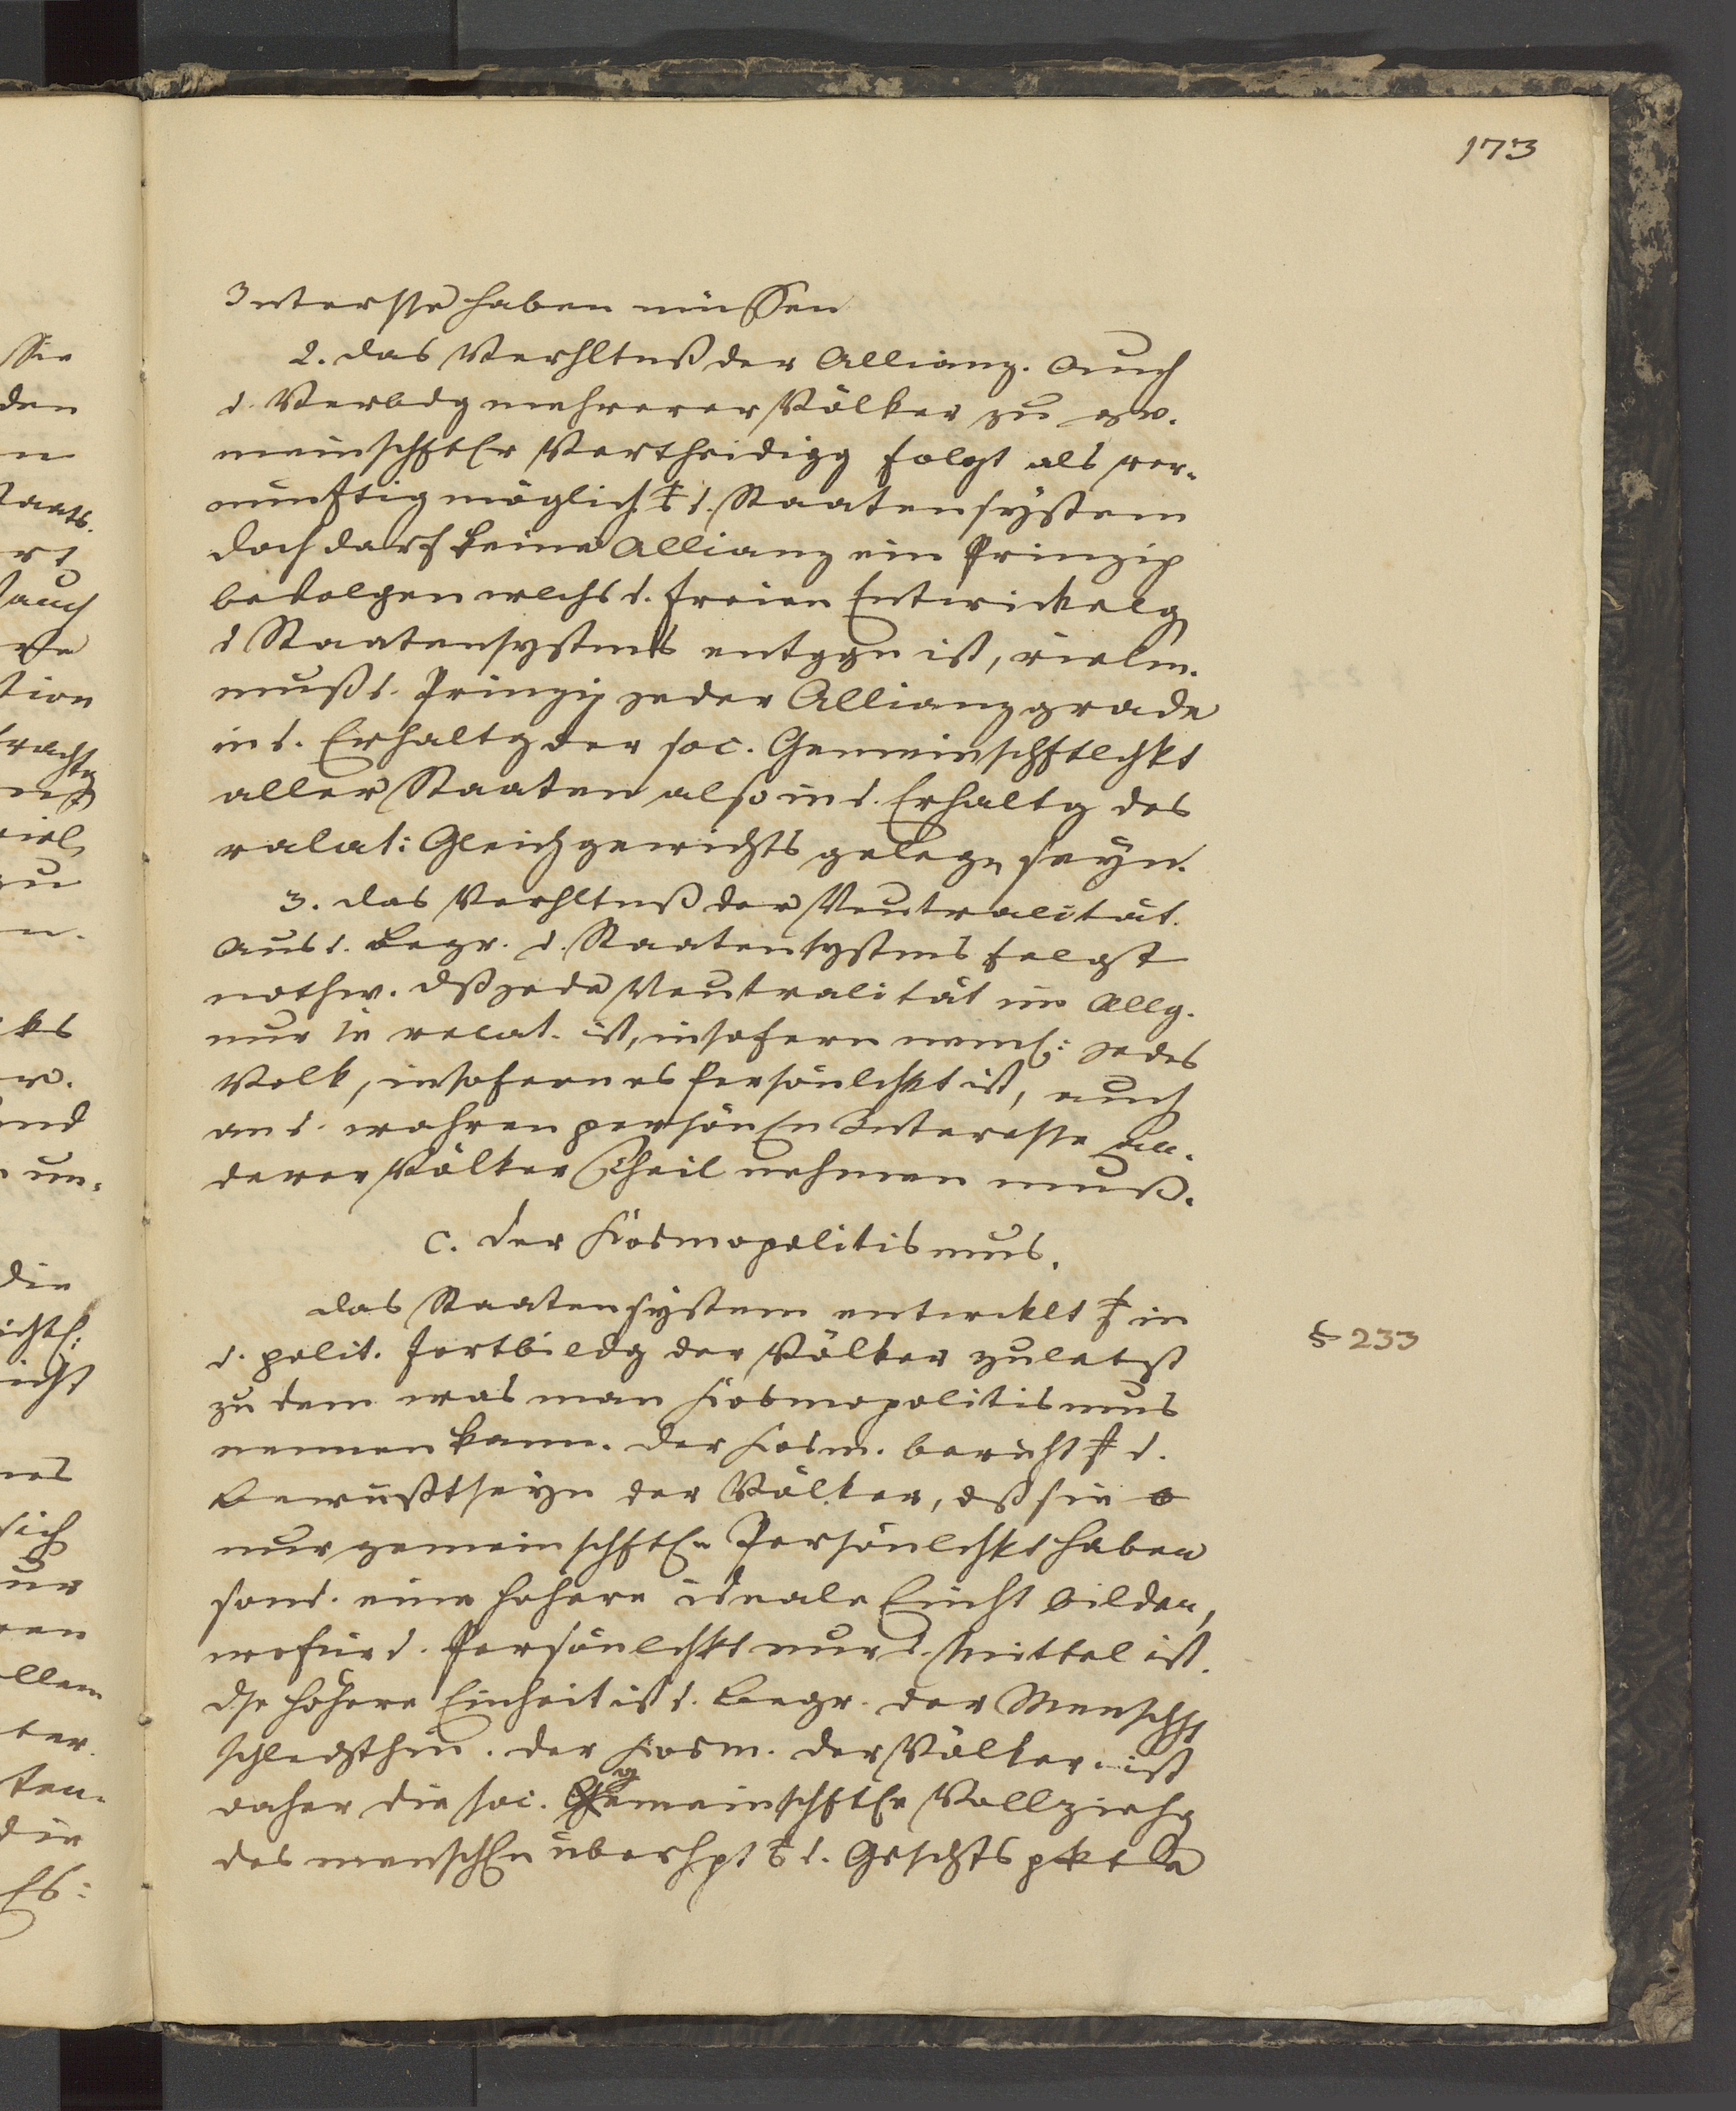 173
Interesse haben müssen
2. das Verhltnß der Allianz. Auch
d. Verbdg mehrerer Völker zu ge-
meinschftlr Vertheidigg folgt als ver-
nünftig möglich d. Staatensystem
doch darf keine Allianz ein Prinzip
befolgen welchs d. freien Entwickelg
d Staatensystms entggn ist, vielm.
muß d. Prinzip jeder Allianz grade
in d. Erhaltg der soc. Gemeinschftlchkt
aller Staaten also in d. Erhaltg des
relat: Gleichgewichts gelegn seyn.
3. das Verhltnß der Neutralität.
Aus d. Begr. d. Staatensystms folgt
nothw. dß jede Neutralität im Allg.
nur relat. ist, insofern neml: jedes
Volk, insofern es Persönlchkt ist, auch
an d. wahren persönln Interesse an-
derer Völker Theil nehmen muß.
C. der Kosmopolitismus.
das Staatensystem entwcklt in
d. polit. Fortbildg der Völker zuletzt
§ 233
zu dem was man Kosmopolitismus
nennen kann. der Kosm. beruht d.
Bewußtseyn der Völker, dß sie
nur gemeinschftln Persönlchkt haben
sond. eine höhere ideale Einht bilden,
wofür d. Persönlchkt nur d. Mittel ist.
dse höhere Einheit ist d. Begr. der Menschht
schlechthin. der Kosm. der Völker ist
daher die soc. gemeinschftle Vollziehg
des menschln überhpt d. Geschtspkte